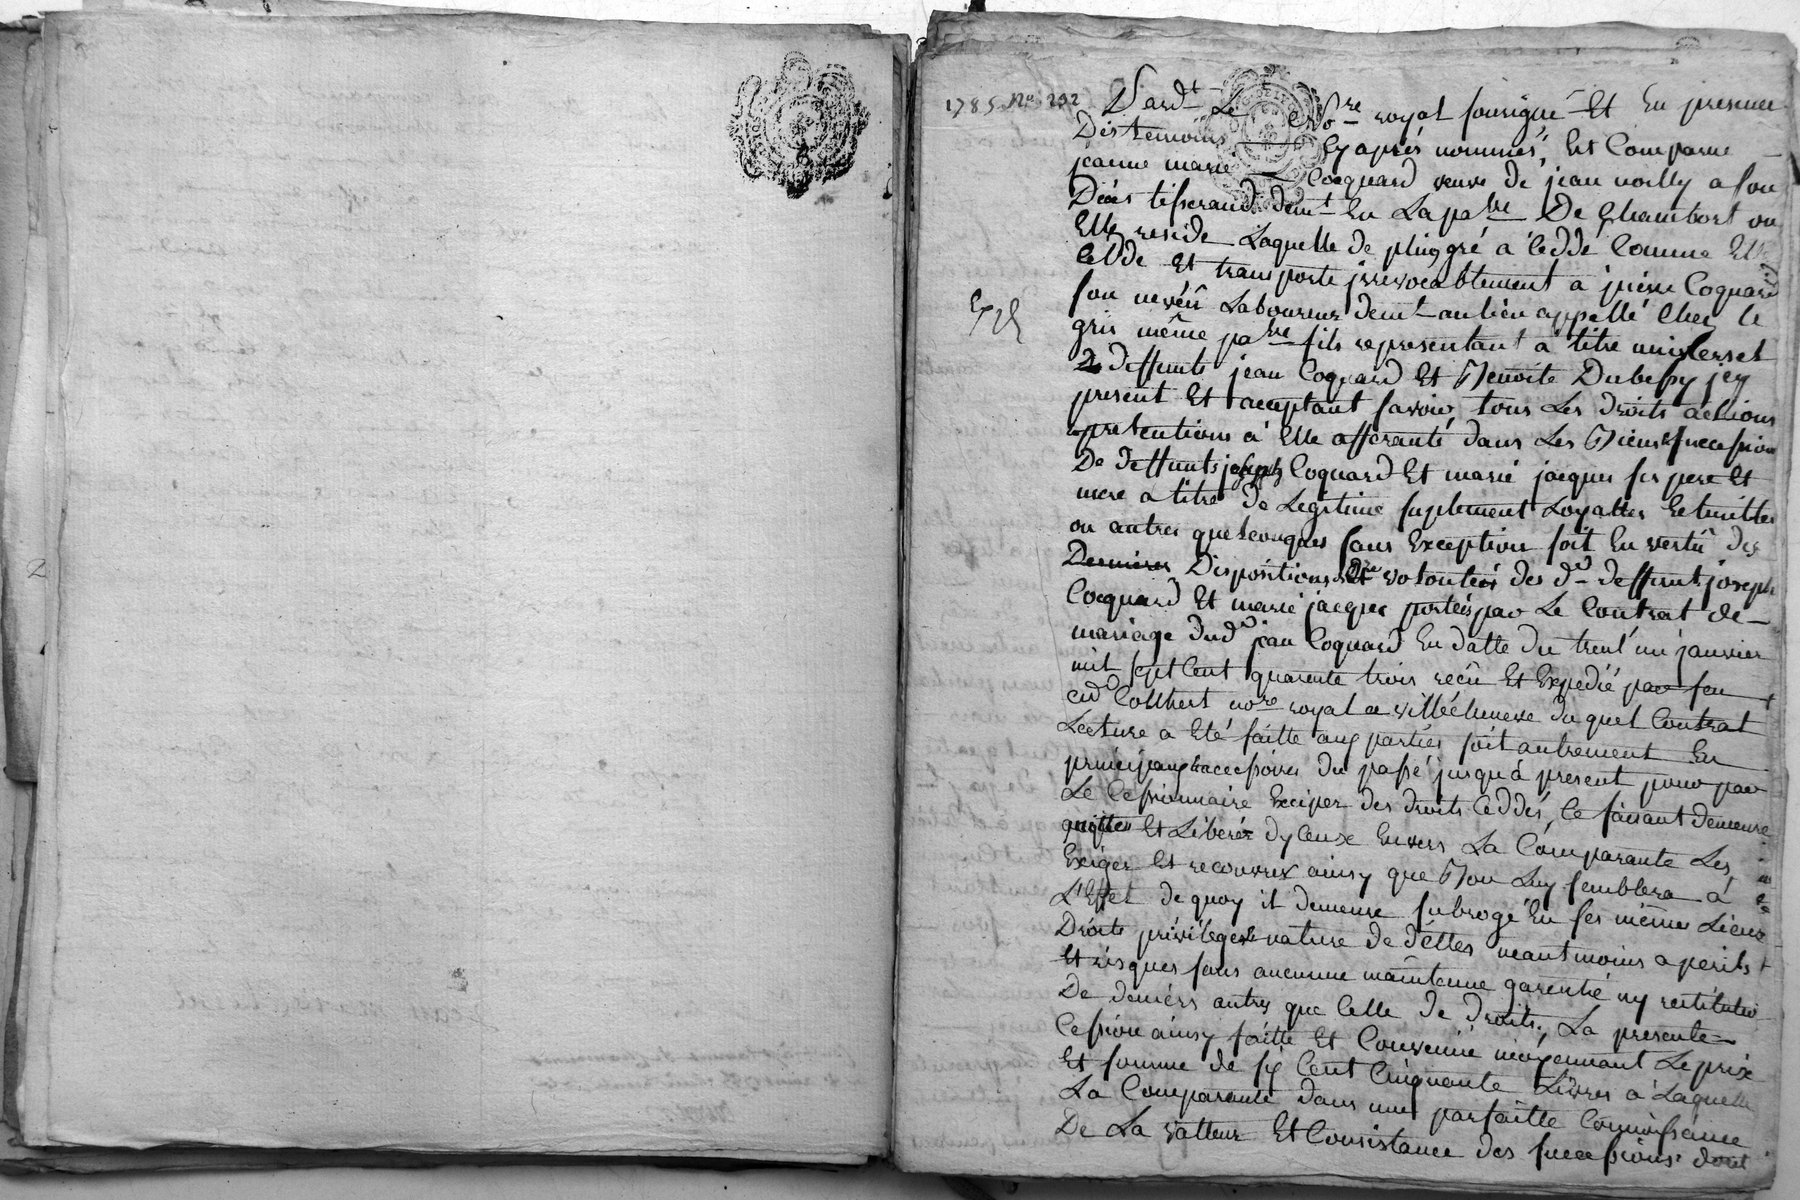 1785 No 292
Pardt Le Nore royal sousigné Et En presence
Des temoins Cy aprés nommés, Est Comparue
jeanne marie Cocquard veuve de jean noilly a son
Décès tisserand demt En La pasre De Chambost ou
Elle reside Laquelle de plin gré a Ceddé Comme Elle
Cedde Et transporte jrrevocablement a pierre Coquard
son neveü Laboureur demt au lieu appellé Chez le
gris même pasre fils representant a titre universel
De deffunts jean Coquard Et Benoite Dubessy jcy
present Et acceptant savoir, tous Les droits actions
pretentions à Elle afferants dans Les Biens & succession
De deffunts joseph Coquard Et marie jacques ses pere Et
mere a titre De Legitime suplement Loyalles
ou autres quelconques sans Exception soit En vertû des
Dernieres Dispositions Et volontées des dts deffunts joseph
Cocquard Et marie jacques portées par Le Contrat de
mariage dud jean Coquard En datte du trent'un janvier
mil sept Cent quarente trois reçû Et Expedié par feu
Colthert nore royal a villecheneve duquel Contrat
Lecture a Eté faitte aux parties soit autrement En
principaux & accessoires du passé jusqu'á present pour par
Le Cessionnaire Exciper des droits Ceddés, Ce faisant demeure
quitte Et Libéré d'yceux Envers La Comparante Les
Exiger Et recouvrer ainsy que Bon Luy semblera à
L'Effet de quoy il demeure subrogé En ses même Lieux
Droits priviléges & nature de dettes neantmoins a perils
Et risques sans aucune maintenue garentie ny restitution
De deniers autres que Celle de droits; La presente
Cession ainsy faitte Et Convenüe moyennant Le prix
Et somme de six Cent Cinquante Livres a Laquelle
La Comparante dans une parfaitte Connoissance
De La valleur Et Consistance des successions dont